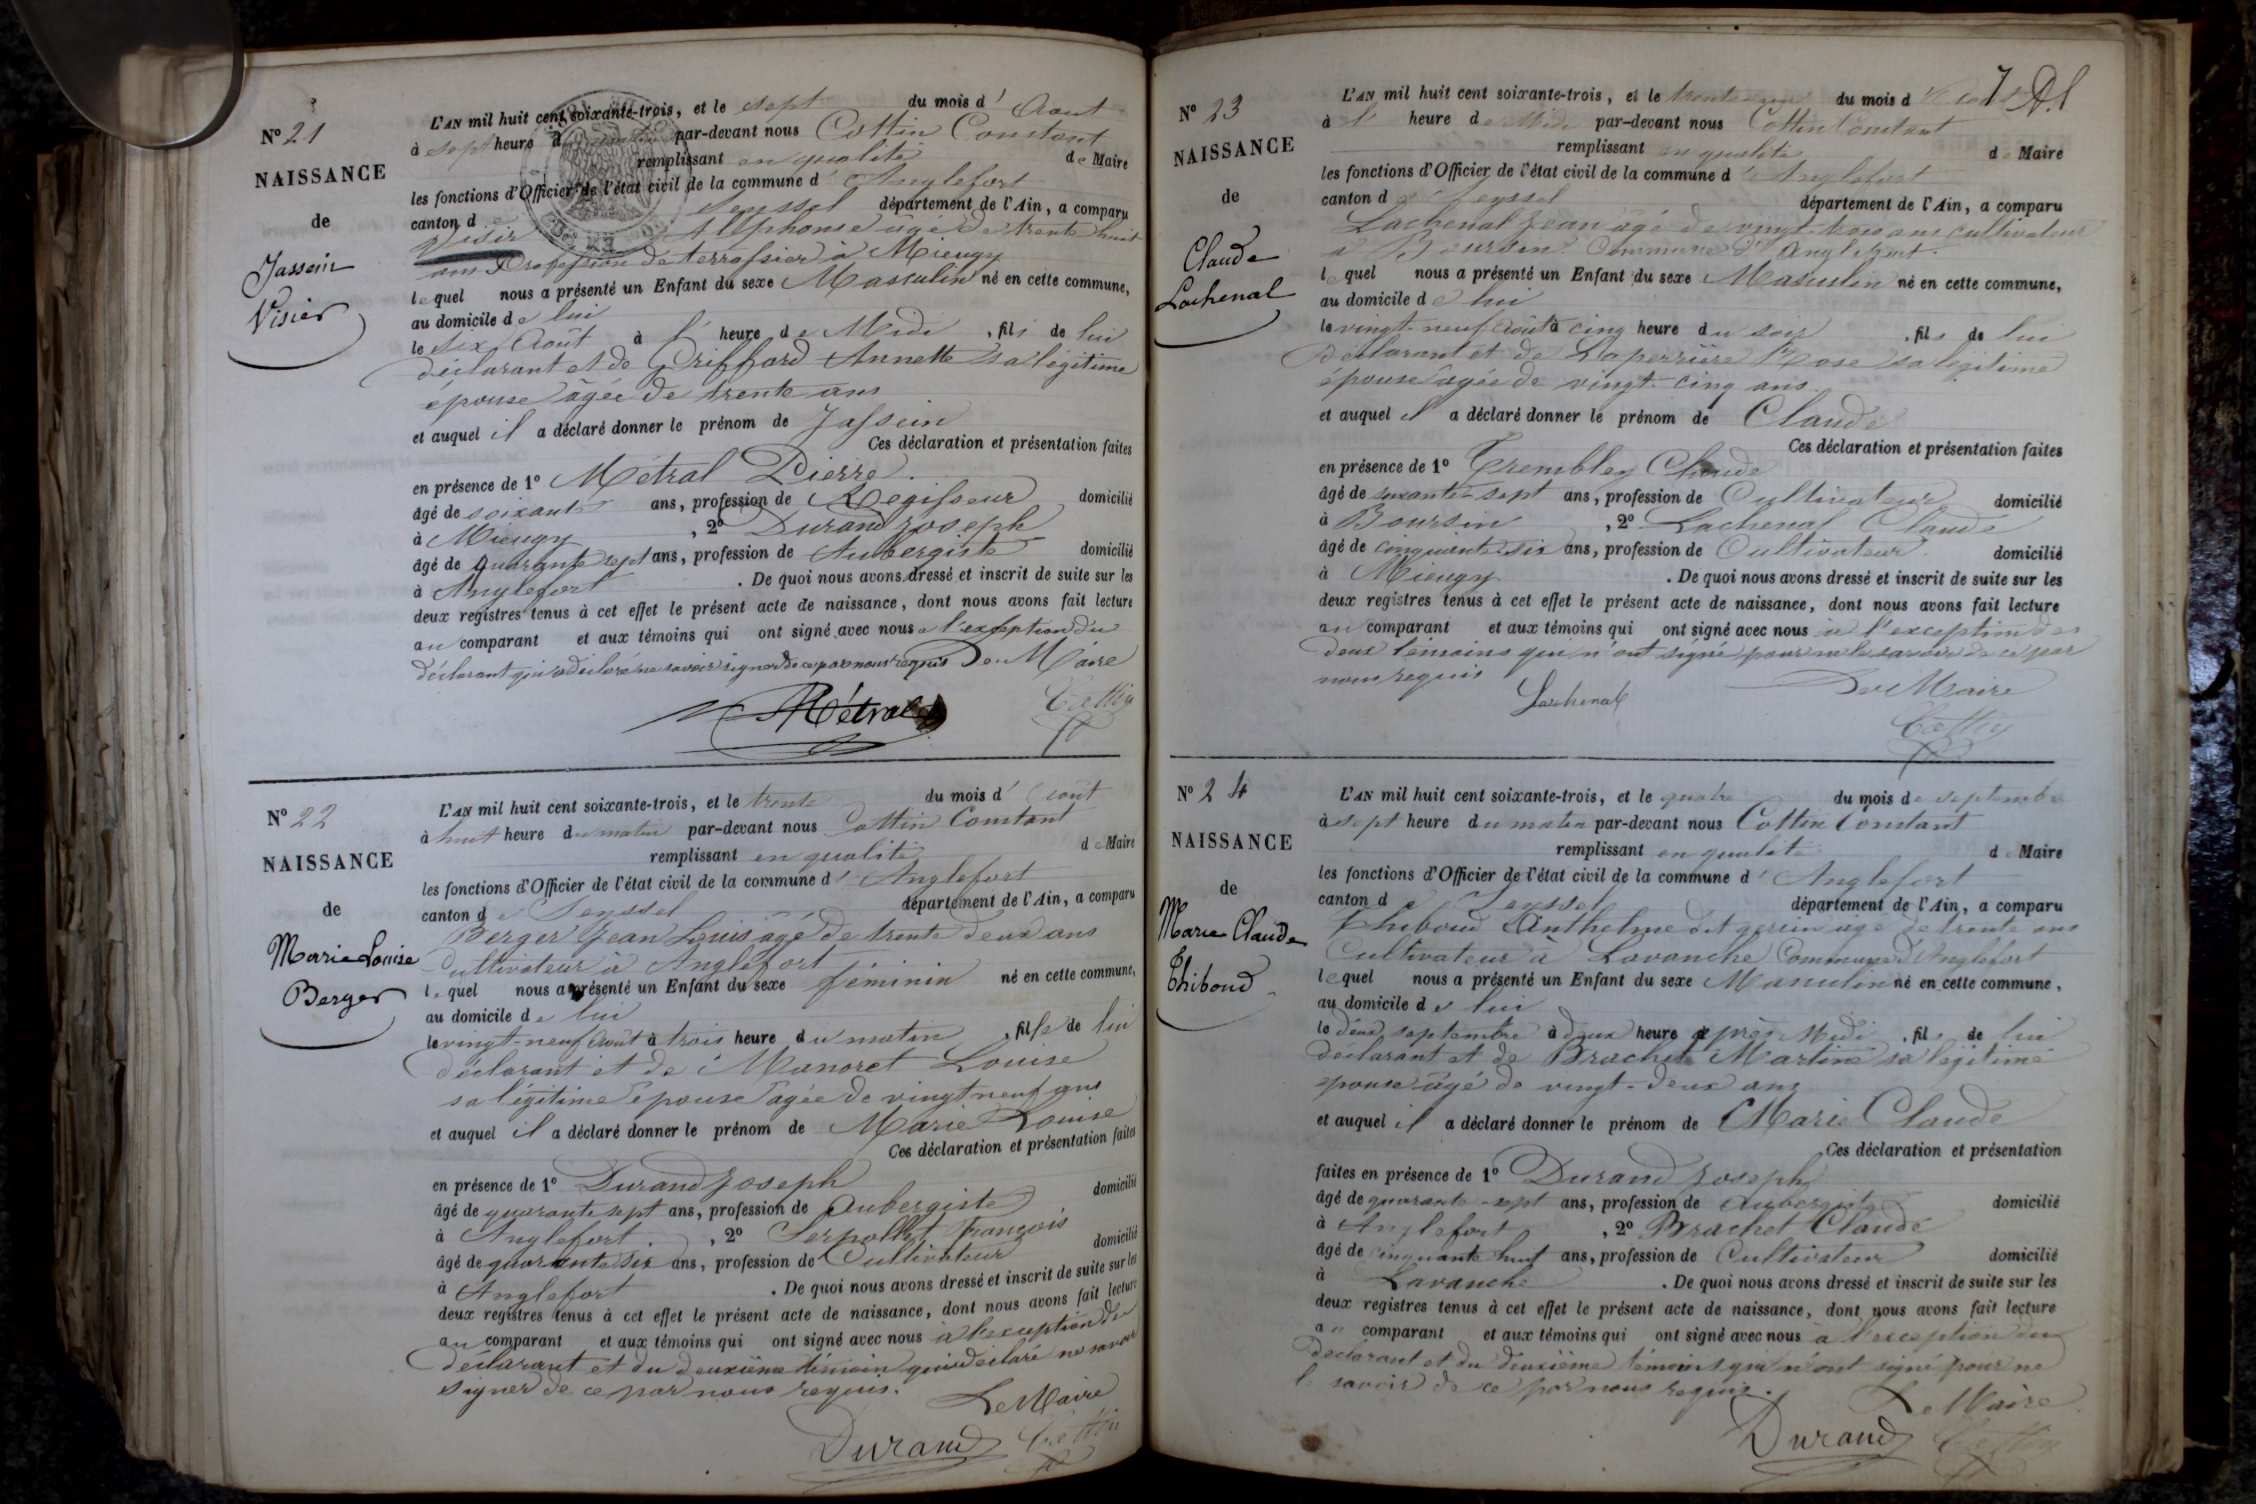 N° 21
NAISSANCE
de
Jassein
Visier
L'AN mil huit cent soixante-trois, et le sept du mois d' Aout
à sept heure d par-devant nous Cottin Constant
remplissant en qualité de Maire
les fonctions d'Officier de l'état civil de la commune d' Anglefort
canton de Seyssel département de l'Ain, a comparu
Visier Alphonse âgé de trente huit
ans Profession de terrassier à Mieugy
lequel nous a présenté un Enfant du sexe Masculin né en cette commune,
au domicile de lui
le six Août à l' heure de Midi , fils de lui
déclarant et de Griffard Annette sa légitime
épouse âgée de trente ans
et auquel il a déclaré donner le prénom de Jassein
Ces déclaration et présentation faites
en présence de 1° Métral Pierre
âgé de soixante ans, profession de Régisseur domicilié
à Mieugy , 2° Durand Joseph
âgé de quarante sept ans, profession de Aubergiste domicilié
à Anglefort . De quoi nous avons dressé et inscrit de suite sur les
deux registres tenus à cet effet le présent acte de naissance, dont nous avons fait lecture
au comparant et aux témoins qui ont signé avec nous a l'exception du
déclarant qui a déclaré ne savoir signer de ce par nous requis Le Maire
Métral Cottin
N° 22
NAISSANCE
de
Marie Louise
Berger
L'AN mil huit cent soixante-trois, et le trente du mois d' Août
à huit heure du matin par-devant nous Cottin Constant
remplissant en qualité de Maire
les fonctions d'Officier de l'état civil de la commune d' Anglefort
canton de Seyssel département de l'Ain, a comparu
Berger Jean Louis âgé de trente deux ans
Cultivateur à Anglefort
lequel nous a présenté un Enfant du sexe féminin né en cette commune,
au domicile de lui
le vingt-neuf Août à trois heure du matin , fille de lui
déclarant et de Manoret Louise
sa légitime épouse âgée de vingt neuf ans
et auquel il a déclaré donner le prénom de Marie Louise
Ces déclaration et présentation faites
en présence de 1° Durand Joseph
âgé de quarante sept ans, profession de Aubergiste domicilié
à Anglefort , 2° Serpollet François
âgé de quarante six ans, profession de Cultivateur domicilié
à Anglefort . De quoi nous avons dressé et inscrit de suite sur les
deux registres tenus à cet effet le présent acte de naissance, dont nous avons fait lecture
au comparant et aux témoins qui ont signé avec nous à l'exception du
déclarant et du deuxième témoin qui a déclaré ne savoir
signer de ce par nous requis. Le Maire
Durand Cottin
7
N° 23
NAISSANCE
de
Claude
Lachenal
L'AN mil huit cent soixante-trois, et le du mois d
à l' heure de Midi par-devant nous Cottin Constant
remplissant en qualité de Maire
les fonctions d'Officier de l'état civil de la commune d'Anglefort
canton de Seyssel département de l'Ain, a comparu
Lachenal Jean âgé de vingt-trois ans cultivateur
a Boursin Commune d'Anglefort
lequel nous a présenté un Enfant du sexe Masculin né en cette commune,
au domicile de lui
le vingt-neuf Août à cinq heure du soir , fils de lui
déclarant et de Laperrière Rose sa légitime
épouse âgée de vingt-cinq ans
et auquel il a déclaré donner le prénom de Claude
Ces déclaration et présentation faites
en présence de 1° Trembley Claude
âgé de soixante-sept ans, profession de Cultivateur domicilié
à Boursin , 2° Lachenal Claude
âgé de cinquante six ans, profession de Cultivateur domicilié
à Mieugy . De quoi nous avons dressé et inscrit de suite sur les
deux registres tenus à cet effet le présent acte de naissance, dont nous avons fait lecture
au comparant et aux témoins qui ont signé avec nous à l'exception des
deux témoins qui n'ont signé pour ne le savoir de ce par
nous requis
Lachenal Le Maire
Cottin
N° 24
NAISSANCE
de
Marie Claude
Thiboud
L'AN mil huit cent soixante-trois, et le quatre du mois de septembre
à sept heure du matin par-devant nous Cottin Constant
remplissant en qualité de Maire
les fonctions d'Officier de l'état civil de la commune d' Anglefort
canton de Seyssel département de l'Ain, a comparu
Thiboud Anthelme dit âgé de trente ans
Cultivateur à Lavanche Commune d'Anglefort
lequel nous a présenté un Enfant du sexe Masculin né en cette commune,
au domicile de lui
le deux septembre à deux heure après Midi , fils de lui
déclarant et de Brachet Martine sa légitime
épouse âgé de vingt-deux ans
et auquel il a déclaré donner le prénom de Marie Claude
Ces déclaration et présentation
faites en présence de 1° Durand Joseph
âgé de quarante-sept ans, profession de Aubergiste domicilié
à Anglefort , 2° Brachet Claude
âgé de cinquante huit ans, profession de Cultivateur domicilié
à Lavanche . De quoi nous avons dressé et inscrit de suite sur les
deux registres tenus à cet effet le présent acte de naissance, dont nous avons fait lecture
au comparant et aux témoins qui ont signé avec nous a l'exception du
déclarant et du deuxième témoins qui n'ont signé pour ne
le savoir de ce par nous requis.
Le Maire
Durand Cottin